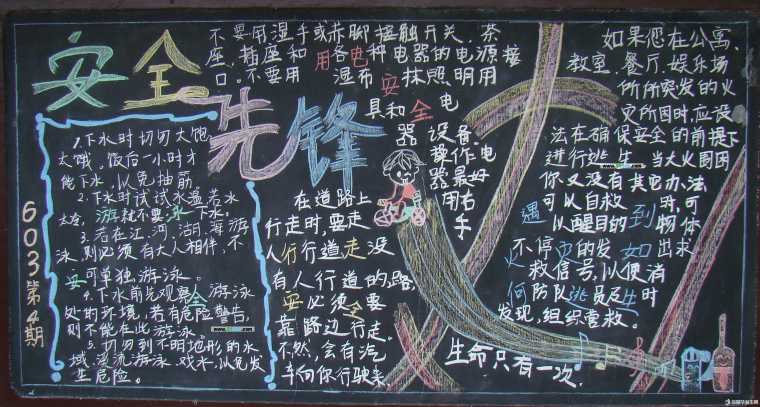 安全
先锋
603第4期
1.下水时切勿太饱
太饿,饭后一小时才
能下水,以免抽筋。
2.下水时试试水温若水
太冷,游就不要泳下水。
3.若在江、河、湖、海游
泳,则必须有大人相伴,不
安可单独游泳。
4.下水前先观察全游泳
处的环境,若有危险警告,
则不能在此游泳。
5.切勿到不明地形的水
域、溪流游泳、戏水,以免发
生危险。
不要用湿手或赤脚接触开关、茶
座、插座和用各电种电器的电源接
口。不要用湿布安抹照明用
具和全电
器设备
操作电
器最好
用右
手
在道路上
行走时,要走
人行行道走没
有人行道的路,
安必须全要
靠路边行走。
不然,会有汽
车向你行驶来
如果您在公寓、
教室、餐厅、娱乐场
所所突发的火
灾所困时,应设
法在确保安全的前提下
进行逃生,当大火围困
你又没有其它办法,
遇可以自救时,可
以醒目的到物体
不停灾的发如出求
救信号,以便消
何防队逃员及生时
发现,组织营救。
生命只有一次